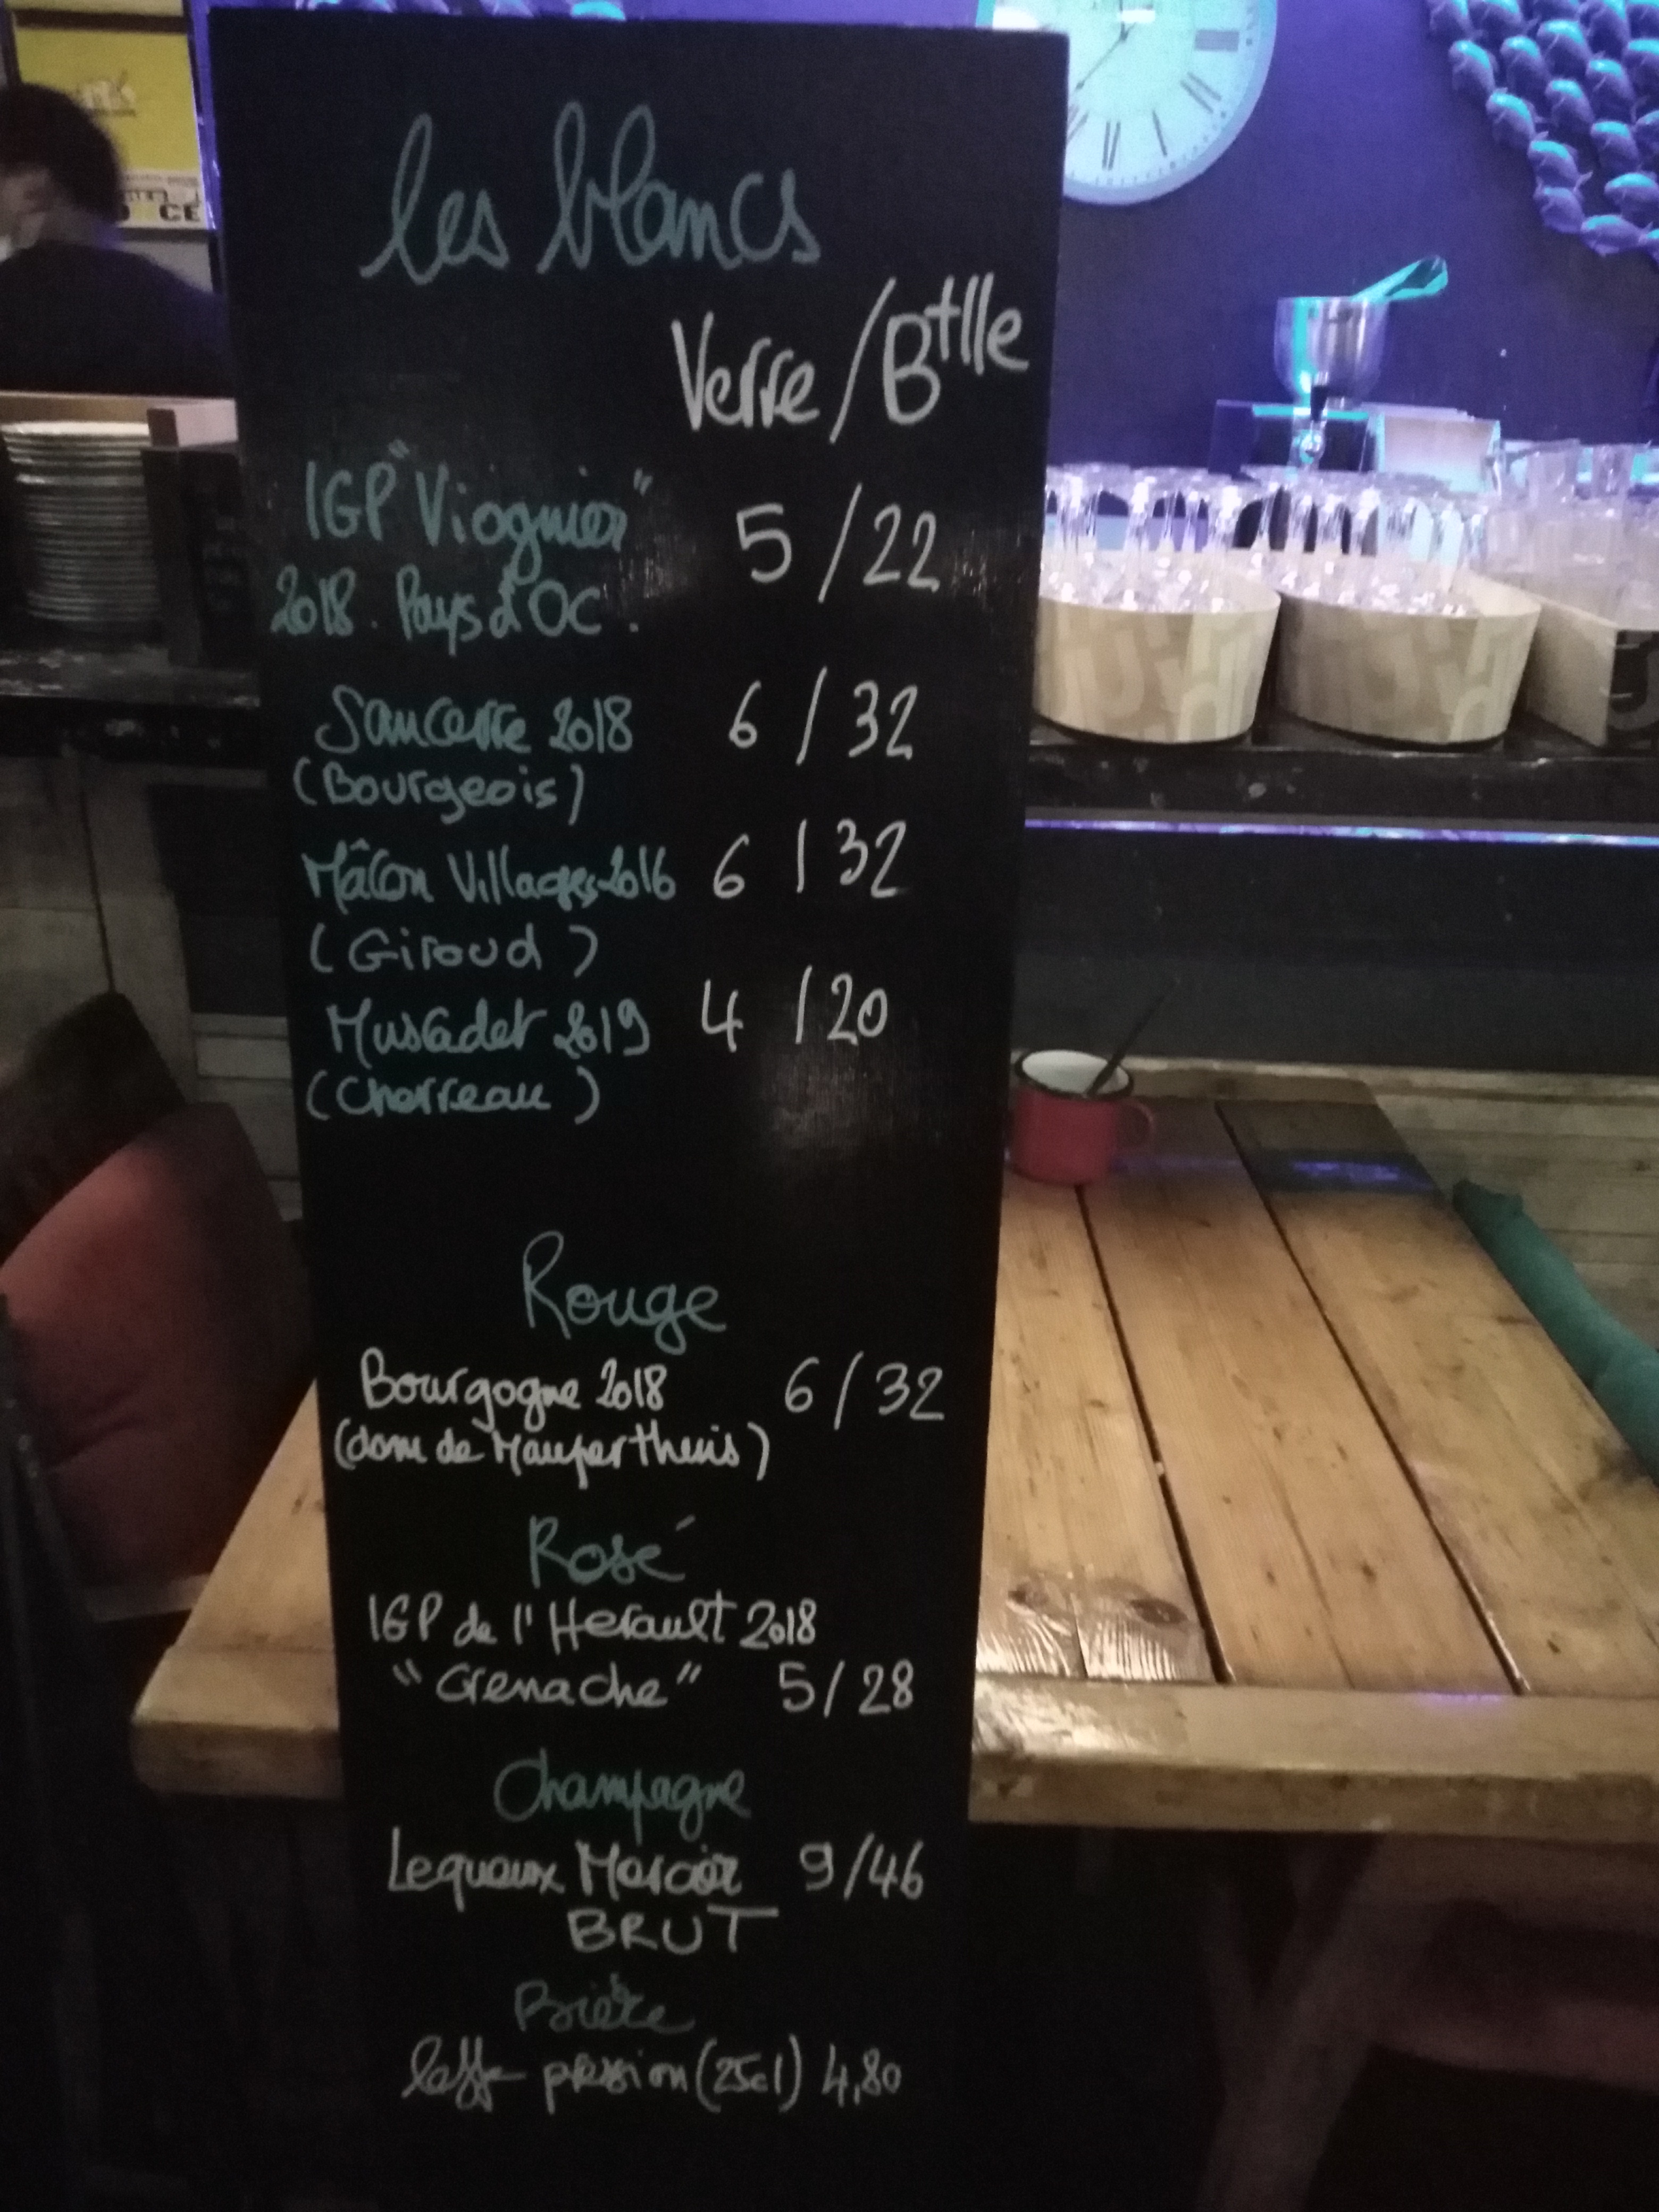 les blancs
Verre/Btlle
IGP "Viognier" 5/22
2018. Pays d'OC.
Sancerre 2018 6/32
(Bourgeois)
Mâcon Villages 2016 6/32
(Giroud)
Muscadet 2019 4/20
(Chereau)
Rouge
Bourgogne 2018 6/32
(dom de Mauperthuis)
Rosé
IGP de l'Herault 2018
"Grenache" 5/28
Champagne
Lequeux Mercier 9/46
BRUT
Bière
leffe pression (25cl) 4,80